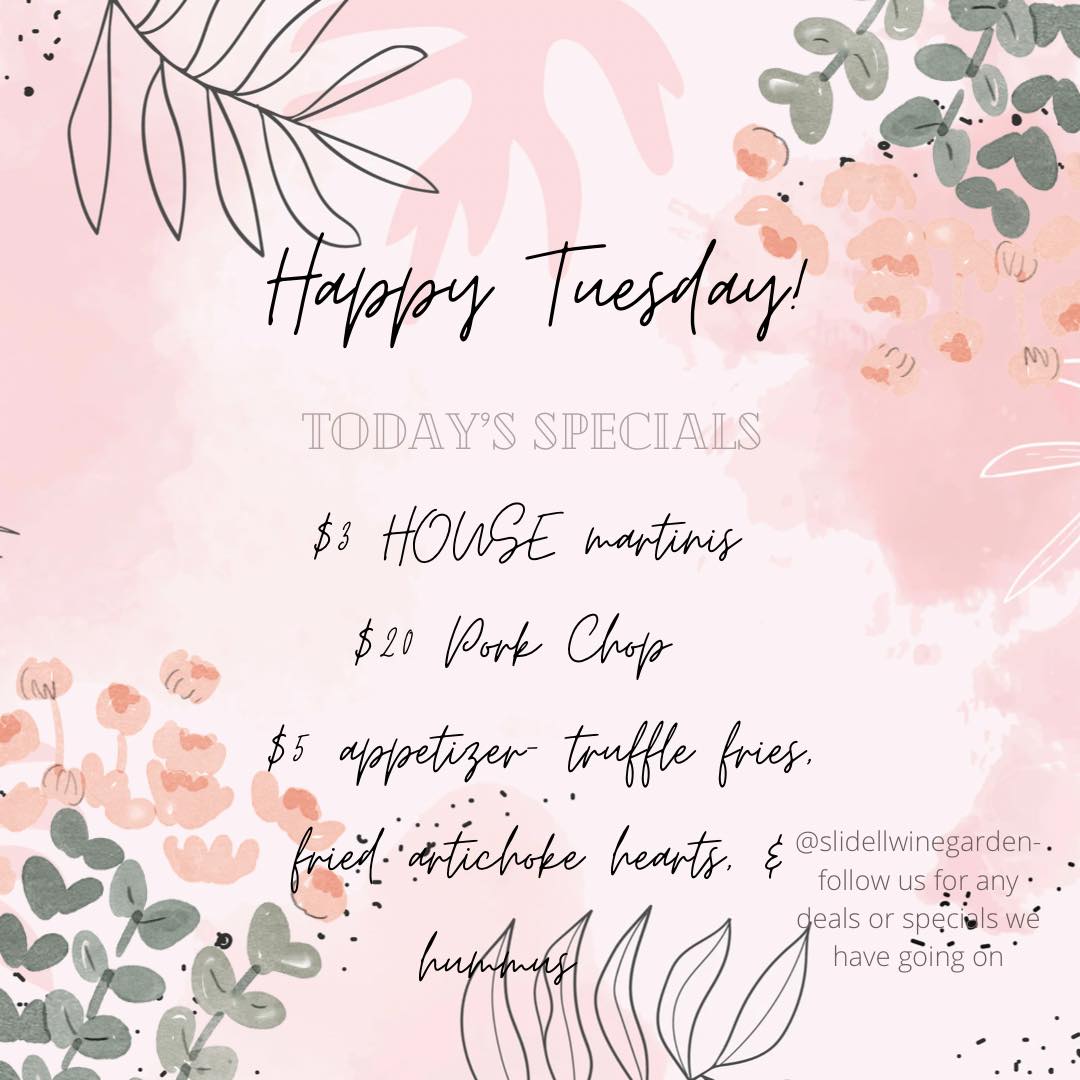 Happy Tuesday!
TODAY'S SPECIALS
$3 HOUSE martinis
$20 Pork Chop
$5 appetizer- truffle fries,
fried artichoke hearts, &
hummus
@slidellwinegarden-
follow us for any
deals or specials we
have going on